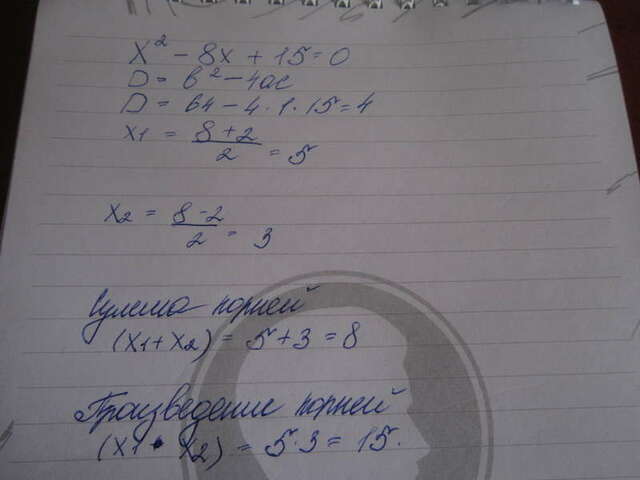 x² - 8x + 15 = 0
D = b² - 4ac
D = 64 - 4 · 1 · 15 = 4
x1 = (8 + 2)/2 = 5
x2 = (8 - 2)/2 = 3
Сумма корней
(x1 + x2) = 5 + 3 = 8
Произведение корней
(x1 · x2) = 5 · 3 = 15.